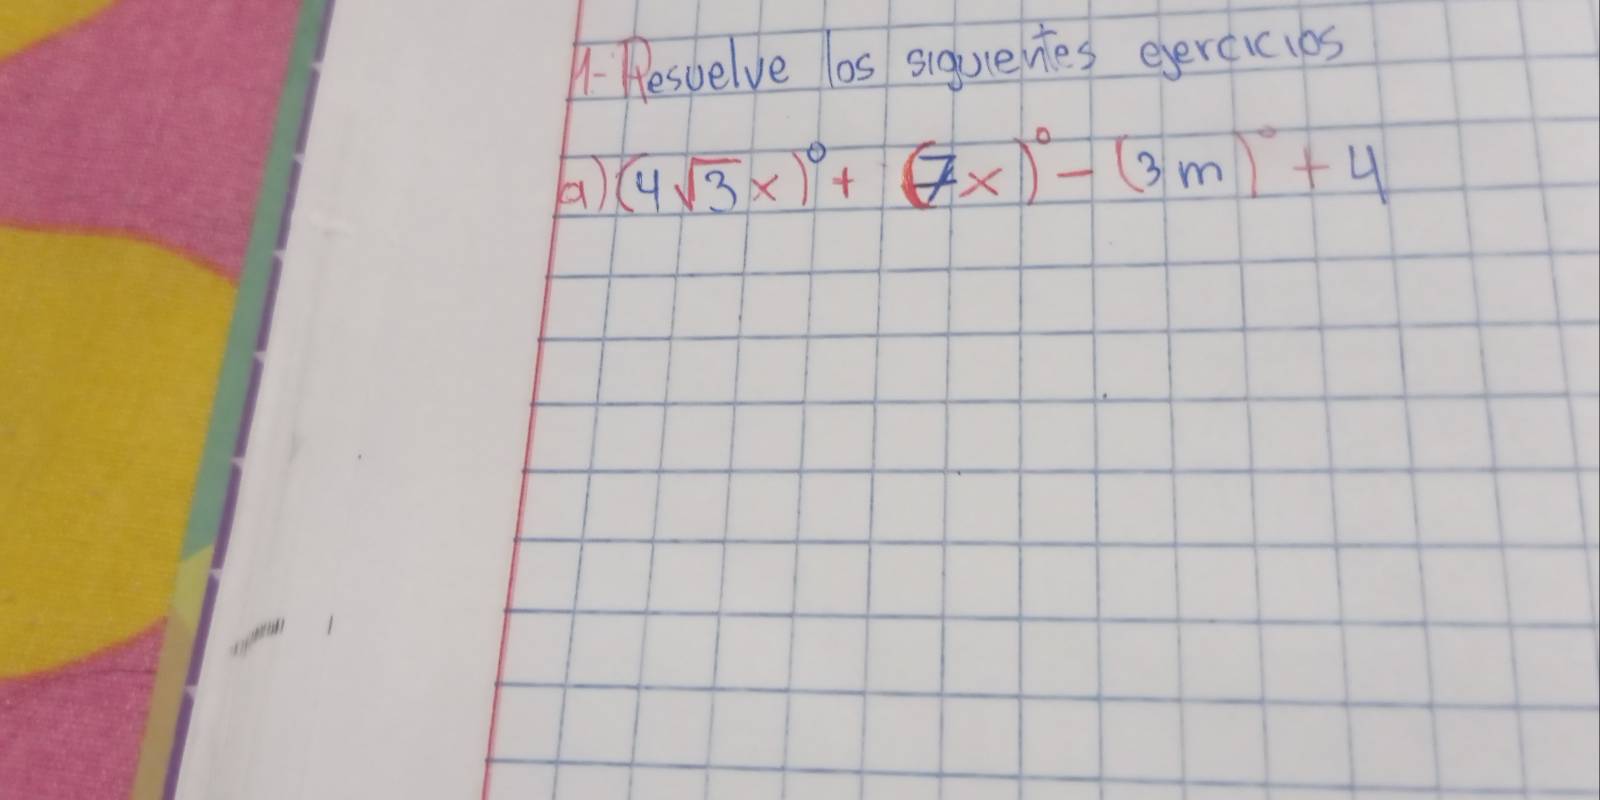 1.- Resuelve los siguientes ejercicios
a) (4√3x)⁰ + (7x)⁰ - (3m)⁰ + 4